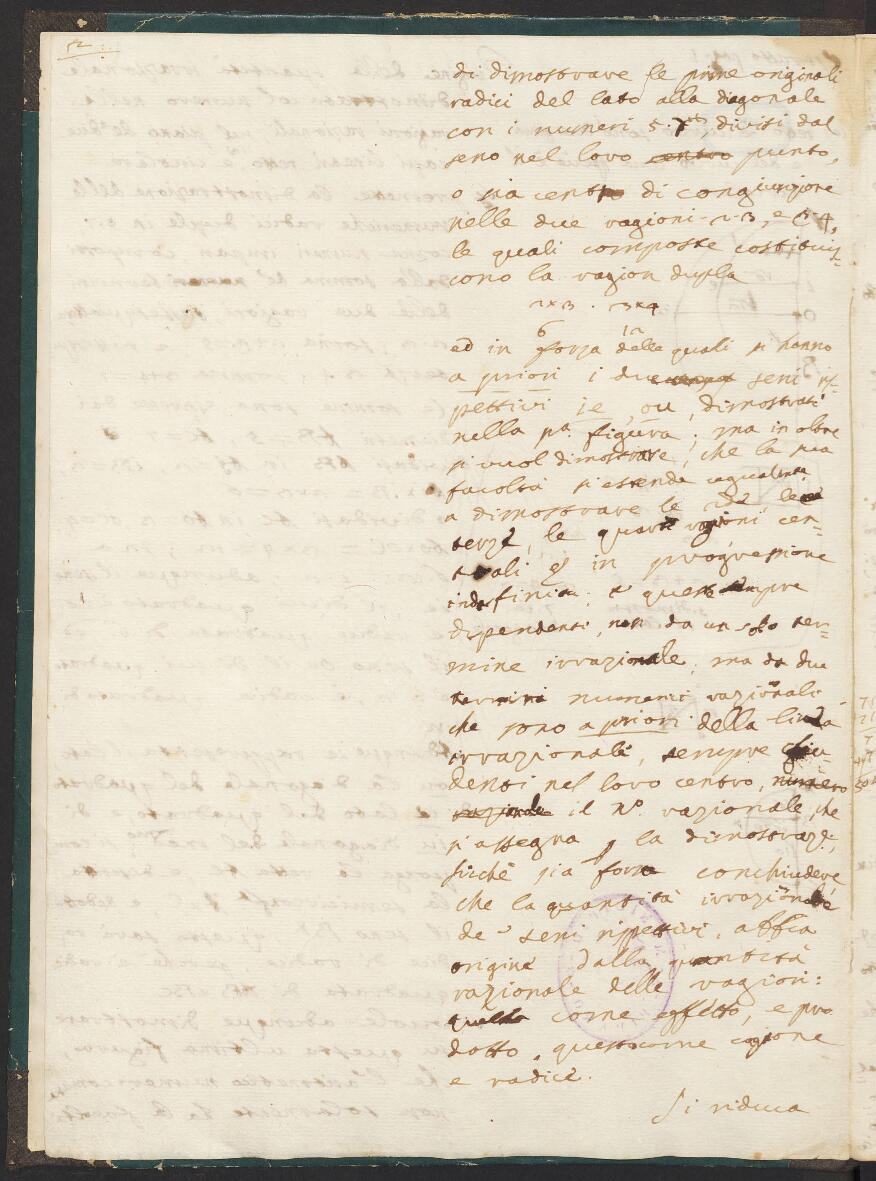 52
di dimostrare le prime originali
radici del lato alla diagonale
con i numeri 5. 7 divisi dal
seno nel loro centro punto,
o sia centro di congiunzione
nelle due ragioni 2-3, e 3-4,
le quali composte costitui-
cono la ragion dupla
2x3 . 3x4
6 12
ed in forza delle quali si hanno
a priori i due seni ris-
pettivi ie, ou, dimostrati
nella pa. figura; ma in oltre
si vuol dimostrare, che la sua
facoltà si estenda egualmente
a dimostrare le
terze, le quarte ragioni cen-
trali in progressione
indefinita; e queste sempre
dipendenti, non da un solo ter-
mine irrazionale, ma da due
termini numerici razionali
che sono a priori della linea
irrazionale, sempre
denti nel loro centro, numero
razionale il no. razionale, che
si assegna la dimostraze;
sicchè sia forza conchiudere,
che la quantità irrazionale
de' seni rispettivi, abbia
origine dalla quantità
razionale delle ragioni:
quella come effetto, e pro
dotto, questa come cagione
e radice.
Si riduca